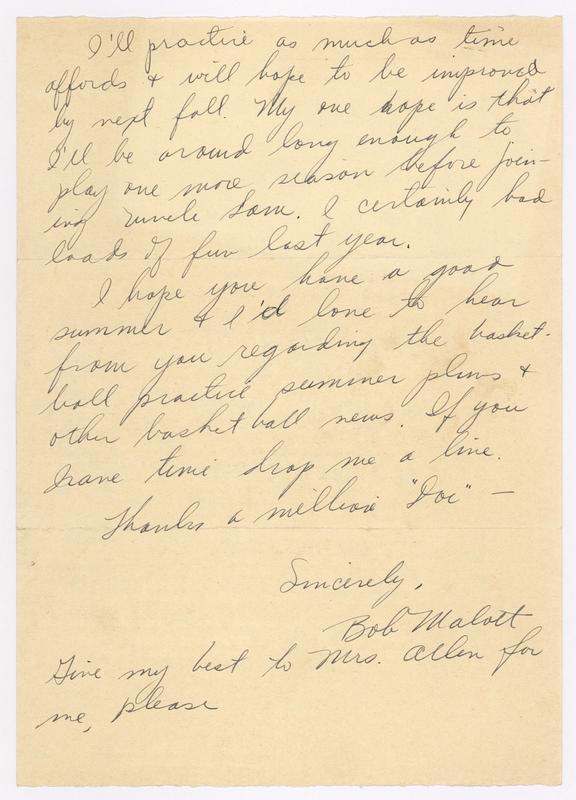 I'll practice as much as time
affords & will hope to be improved
by next fall. My one hope is that
I'll be around long enough to
play one more season before join-
ing Uncle Sam. I certainly had
loads of fun last year.
I hope you have a good
summer & I'd love to hear
from you regarding the basket-
ball practice summer plans &
other basketball news. If you
have time drop me a line.
Thanks a million "Doc" —
Sincerely,
Bob Malott
Give my best to Mrs. Allen for
me, please